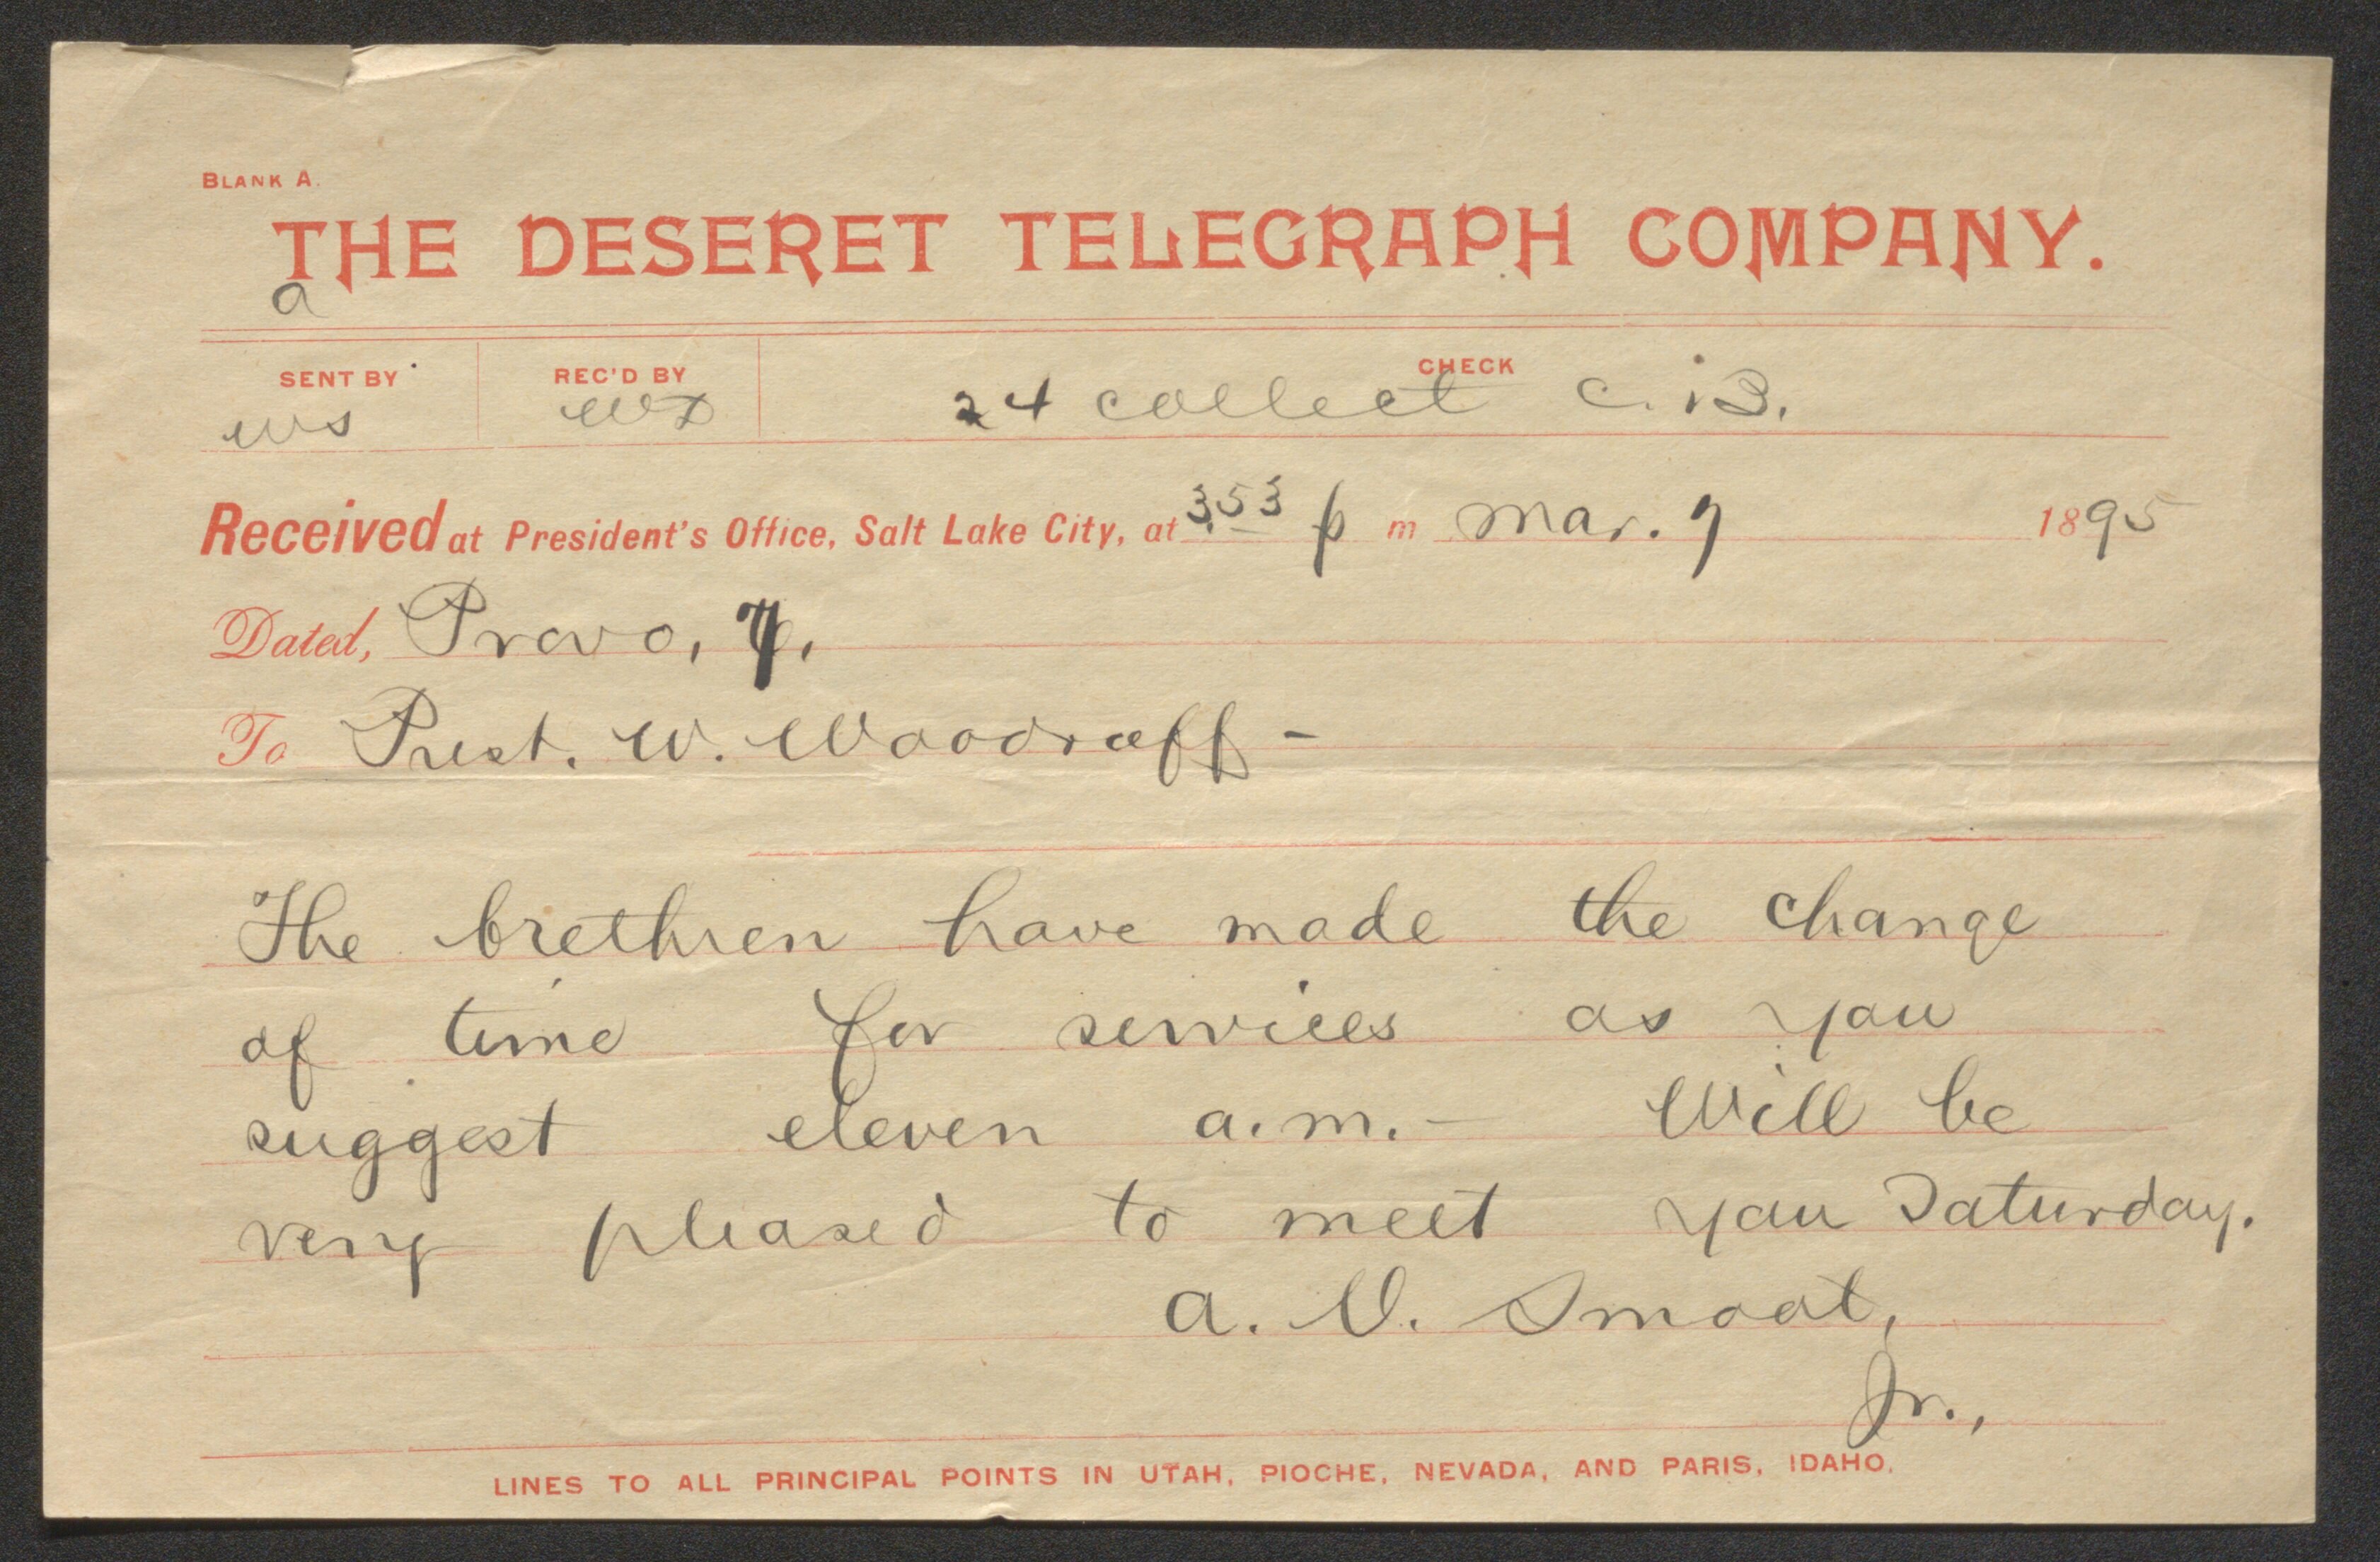 BLANK A.
THE DESERET TELEGRAPH COMPANY.
a
SENT BY REC'D BY CHECK
ws 24 collect C. B.
Received at President's Office, Salt Lake City, at 3.53 p m Mar. 7 1895
Dated, Provo, 7.
To Prest. W. Woodruff -
The brethren have made the change
of time for services as you
suggest eleven a.m. - Will be
very pleased to meet you Saturday.
A. O. Smoot,
Jr.,
LINES TO ALL PRINCIPAL POINTS IN UTAH, PIOCHE, NEVADA, AND PARIS, IDAHO.